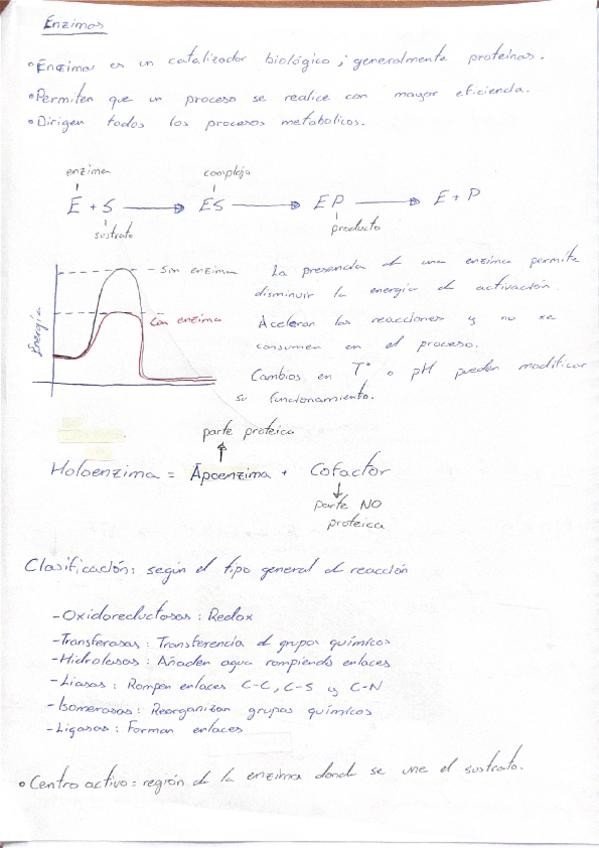 Enzimas
• Enzima es un catalizador biológico; generalmente proteinas.
• Permiten que un proceso se realice con mayor eficiencia.
• Dirigen todos los procesos metabolicos.
enzima complejo
E + S → ES → EP → E + P
sustrato producto
Energía
Sin enzima
Con enzima
La presencia d una enzima permite
disminuir la energia d activación.
Aceleran las reacciones y no se
consumen en el proceso.
Cambios en Tº o pH pueden modificar
su funcionamiento.
parte proteica
↑
Holoenzima = Apoenzima + Cofactor
↓
parte NO
proteica
Clasificación: según el tipo general d reacción
- Oxidoreductasas: Redox
- Transferasas: Transferencia d grupos químicos
- Hidrolasas: Añaden agua rompiendo enlaces
- Liasas: Rompen enlaces C-C, C-S y C-N
- Isomerasas: Reorganizan grupos químicos
- Ligasas: Forman enlaces
• Centro activo: región d la enzima donde se une el sustrato.